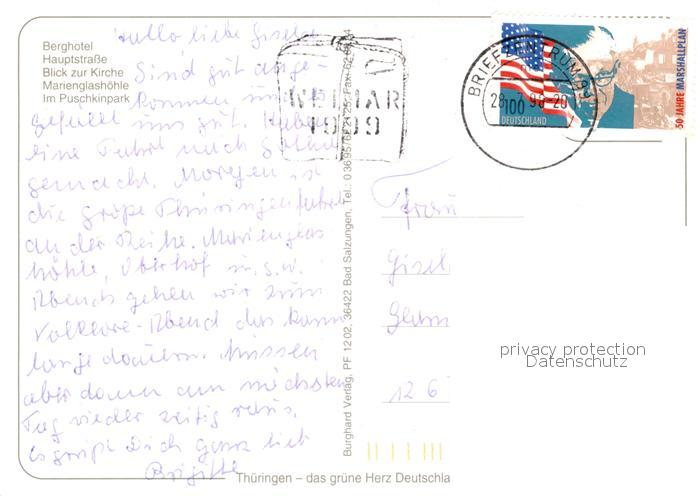 Berghotel
Hauptstraße
Blick zur Kirche
Marienglashöhle
Im Puschkinpark
Hallo, liebe Gisela
Sind gut ange-
kommen und
gefällt uns gut. Haben
eine Fahrt nach Gotha
gemacht. Morgen ist
die große Thüringenfahrt
an der Reihe. Marienglas
höhle, Oberhof u.s.w.
Abends gehen wir zum
Volklore-Abend das kann
lange dauern. Müssen
aber dann am nächsten
Tag wieder zeitig raus.
Es grüßt Dich ganz lieb
Brigitte
WEIMAR
1999
Burghard Verlag, PF 12 02, 36422 Bad Salzungen, Tel.: 0 36 95/62 21 25, Fax:
BRIEFZENTRUM
28.7.98-20
100
DEUTSCHLAND
50 JAHRE MARSHALLPLAN
Frau
Gisel
12 6
privacy protection
Datenschutz
Thüringen – das grüne Herz Deutschla